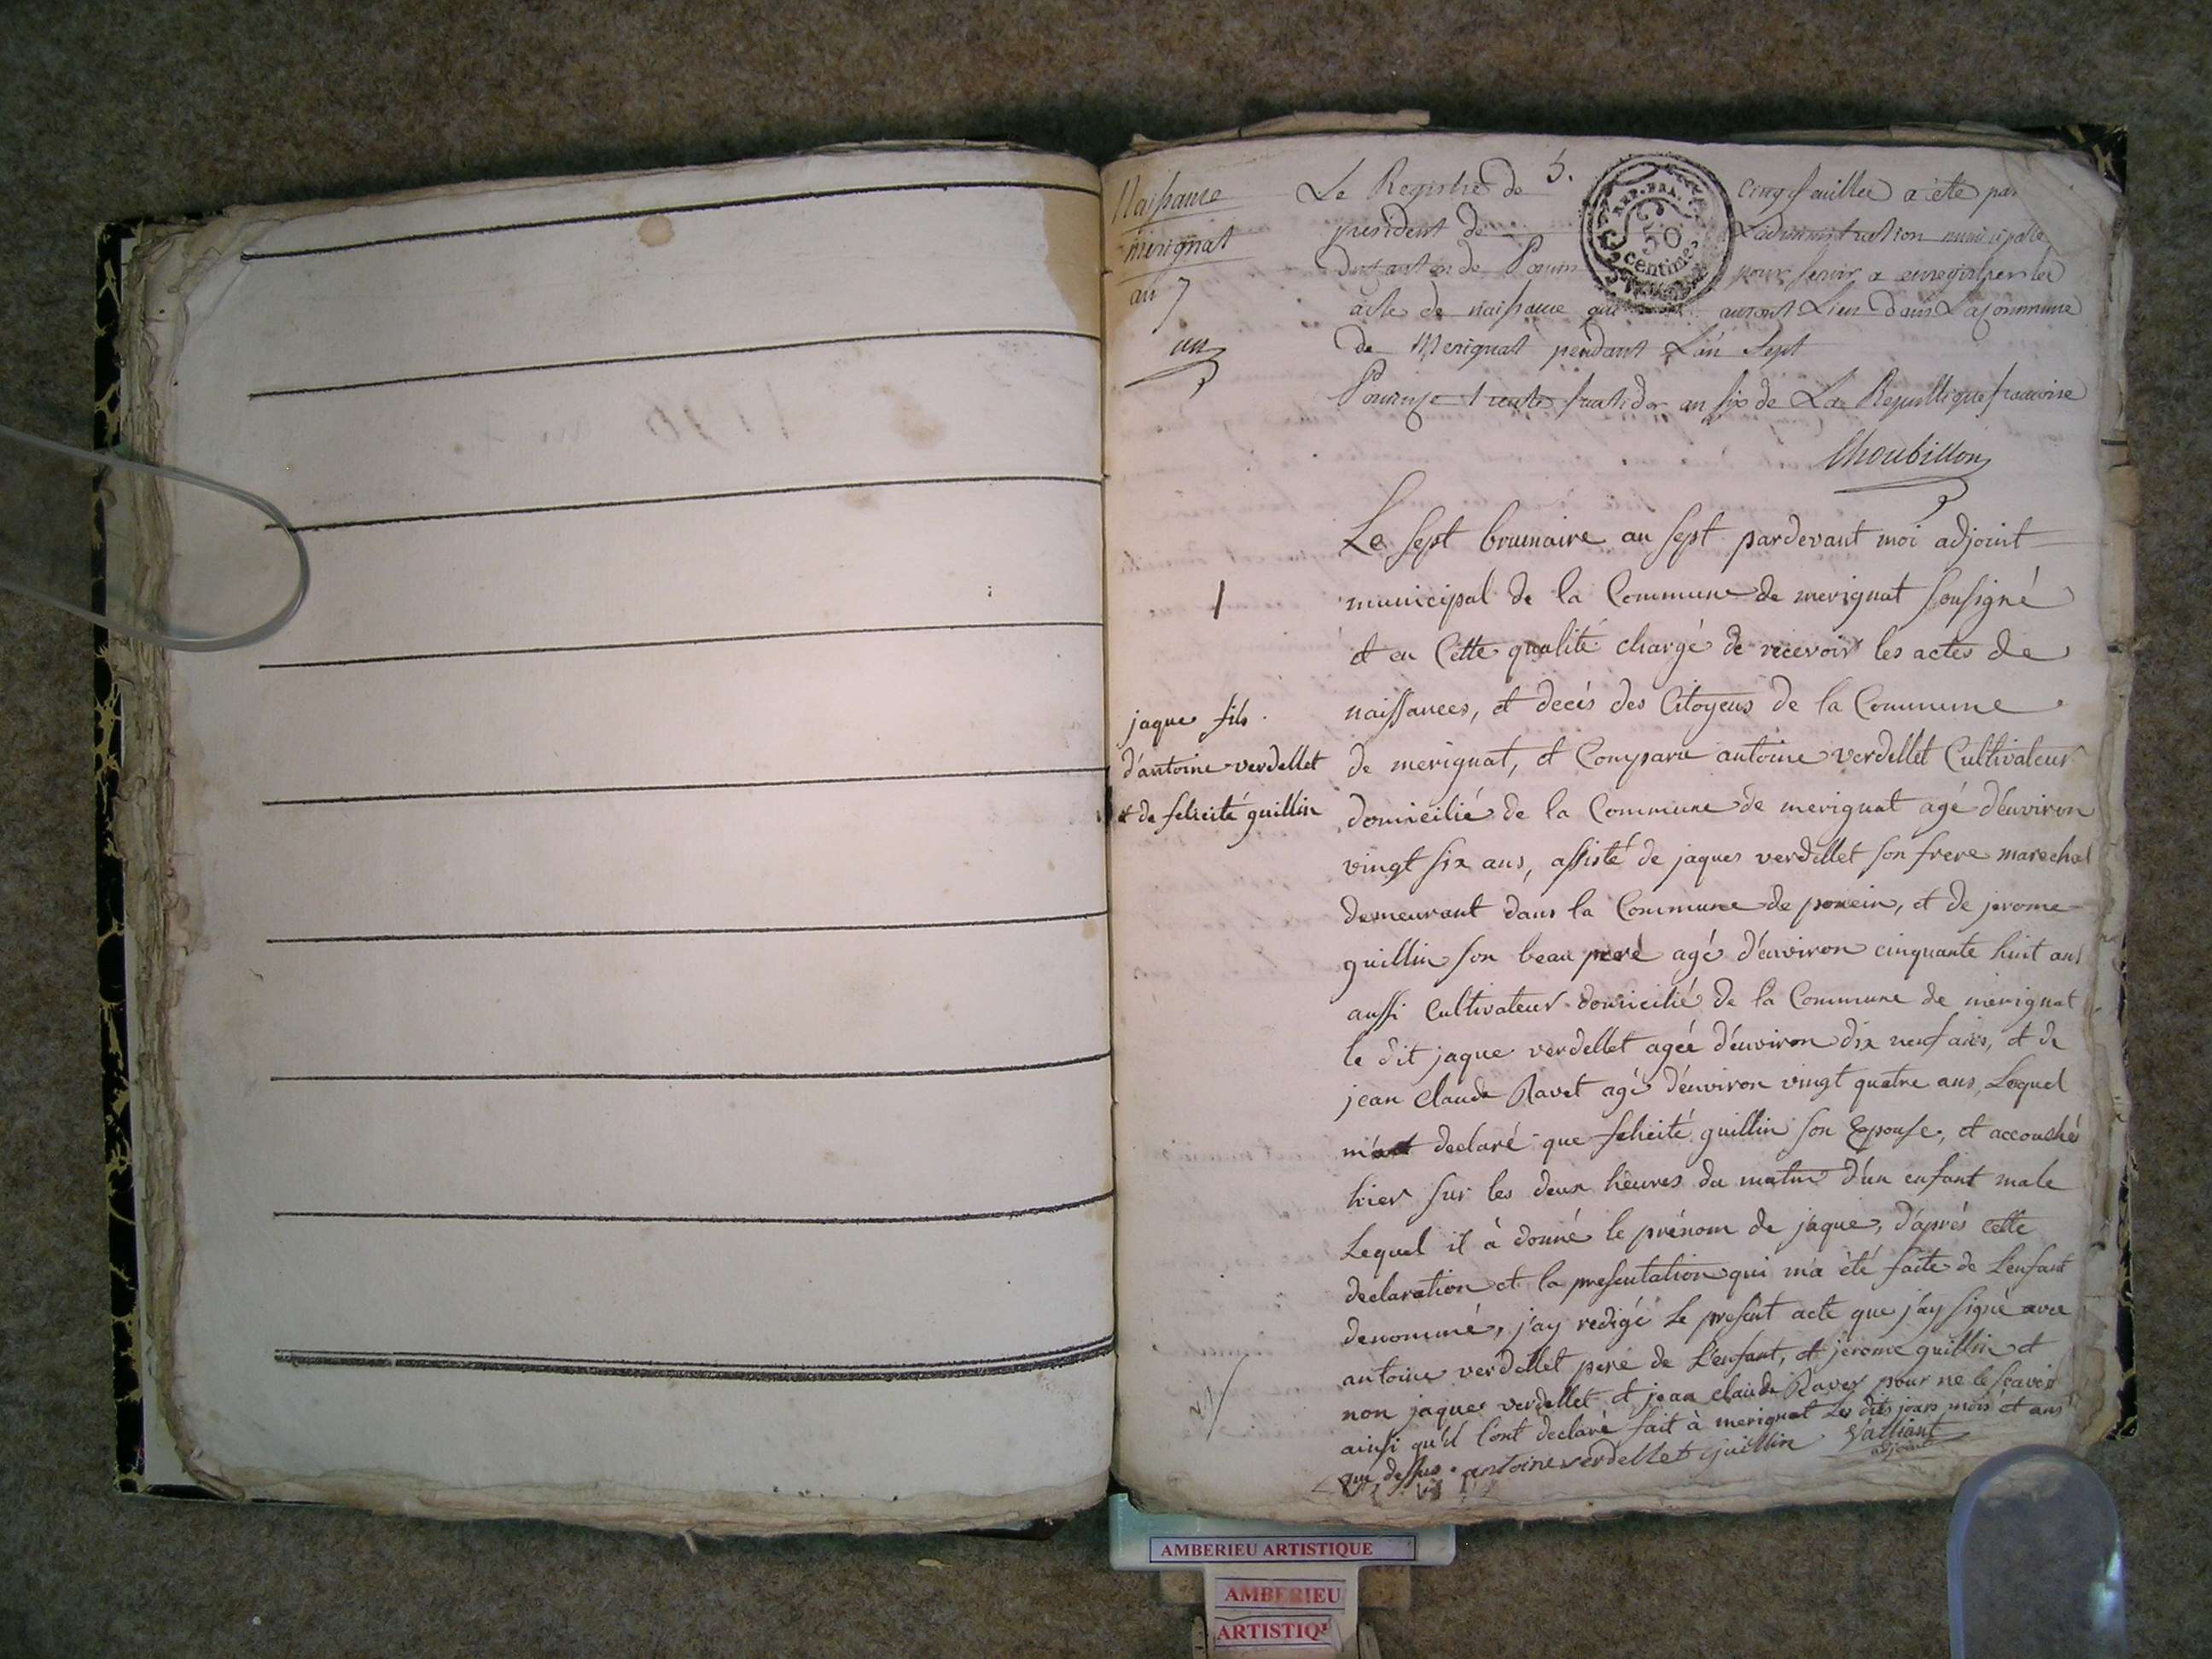 Naissance
merignat
an 7
un
Le Registre de 5. cinq failles a été par
president de L'administration municipale
du Canton de Poncin pour servir a enregistrer les
acte de naissance qui auront Lieu dans La Commune
de Merignat pendant L'an Sept
Poncin le trente fructidor an six de La Republique francoise
REP. FRA.
50
centimes
Choubillon
1
Le sept brumaire an sept pardevant moi adjoint
municipal de la Commune de merignat sousigné
et en Cette qualité chargé de recevoir les actes de
naissances, et decés des Citoyens de la Commune
jaque fils
d'antoine verdellet
et de felicité guillin
de merignat, et Comparu antoine verdellet Cultivateur
domicilié de la Commune de merignat agé d'environ
vingt six ans, assisté de jaques verdellet son frere marechal
demeurant dans la Commune de poncin, et de jerome
guillin son beau peré agé d'environ cinquante huit ans
aussi Cultivateur domicilié de la Commune de merignat
le dit jaque verdellet ageé d'environ dix neuf ans, et de
jean Claude Ravet agé d'environ vingt quatre ans, Lequel
declaré que felicité guillin son Epouse, et accouché
hier sur les deux heures du matin d'un enfant male
Lequel il à donné le prénom de jaque, d'aprés cette
declaration et la presentation qui m'a été faite de L'enfant
denommé, j'ay redigé Le present acte que j'ay signé avec
antoine verdellet peré de L'enfant, et jerome guillin et
non jaques verdellet et jean claude Ravet pour ne le scavoir
ainsi qu'il l'ont declaré fait à merignat Les dits jours mois et ans
que dessus antoine verdellet guillin Valliant
adjoint
AMBERIEU ARTISTIQUE
AMBERIEU
ARTISTIQ